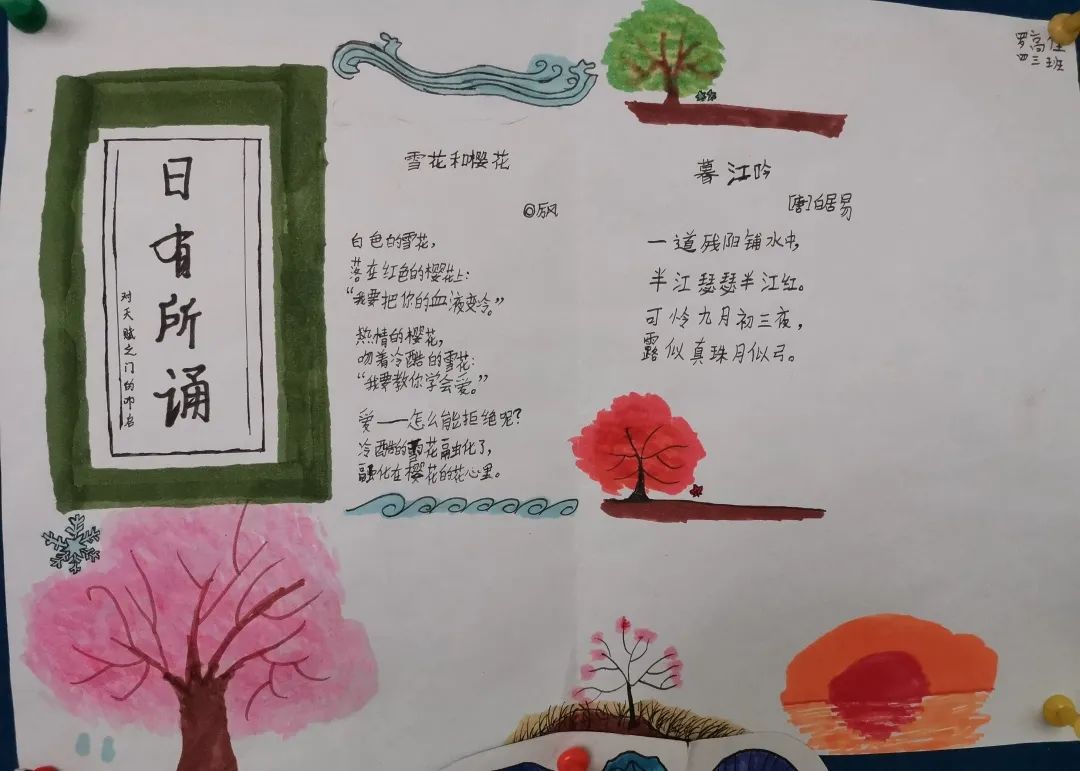 日有所诵
对天赋之门的叩名
雪花和樱花
◎灰风
白色的雪花，
落在红色的樱花上：
“我要把你的血液变冷。”
热情的樱花，
吻着冷酷的雪花：
“我要教你学会爱。”
爱——怎么能拒绝呢？
冷酷的雪花融化了，
融化在樱花的花心里。
暮江吟
[唐]白居易
一道残阳铺水中，
半江瑟瑟半江红。
可怜九月初三夜，
露似真珠月似弓。
罗高佳
四三班